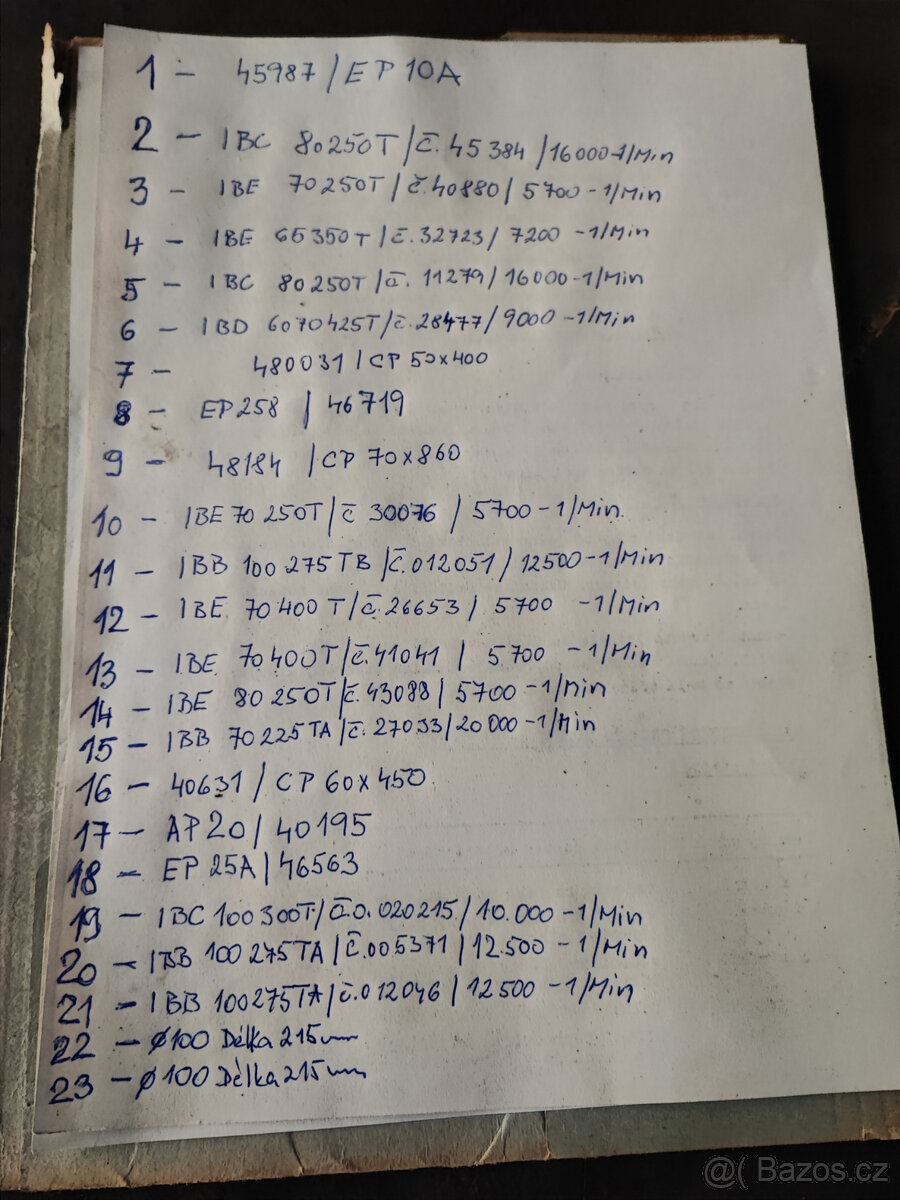 1 - 45987 / EP 10A
2 - IBC 80250T / č. 45384 / 16000-1/Min
3 - IBE 70250T / č. 40880 / 5700 -1/Min
4 - IBE 65350T / č. 32723 / 7200 -1/Min
5 - IBC 80250T / č. 11279 / 16000 -1/Min
6 - IBD 6070425T / č. 28477 / 9000 -1/Min
7 - 480031 / CP 50x400
8 - EP 258 / 46719
9 - 48184 / CP 70x860
10 - IBE 70 250T / č 30076 / 5700 -1/Min.
11 - IBB 100 275 TB / č. 012051 / 12500 -1/Min
12 - IBE 70 400 T / č. 26653 / 5700 -1/Min
13 - IBE 70 400T / č. 41041 / 5.700 -1/Min
14 - IBE 80 250T / č. 43088 / 5700 -1/Min
15 - IBB 70 225 TA / č. 27033 / 20 000 -1/Min
16 - 40631 / CP 60x450
17 - AP 20 / 40195
18 - EP 25A / 46563
19 - IBC 100 300T / č.0.020215 / 10.000 -1/Min
20 - IBB 100 275 TA / č. 005371 / 12.500 -1/Min
21 - IBB 100275TA / č. 012046 / 12 500 -1/Min
22 - ø100 Délka 215mm
23 - ø100 Délka 215mm
@( Bazos.cz